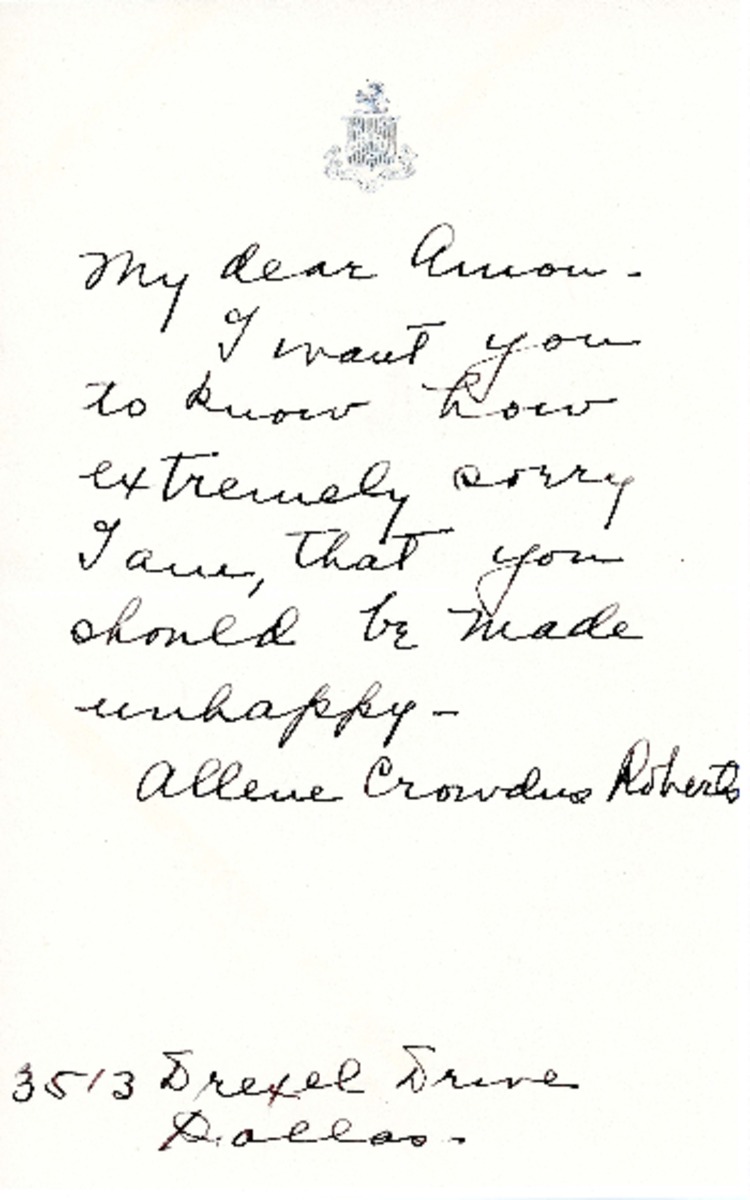 My dear Amon -
I want you
to know how
extremely sorry
I am, that you
should be made
unhappy -
Allene Crowdus Roberts
3513 Drexel Drive
Dallas.